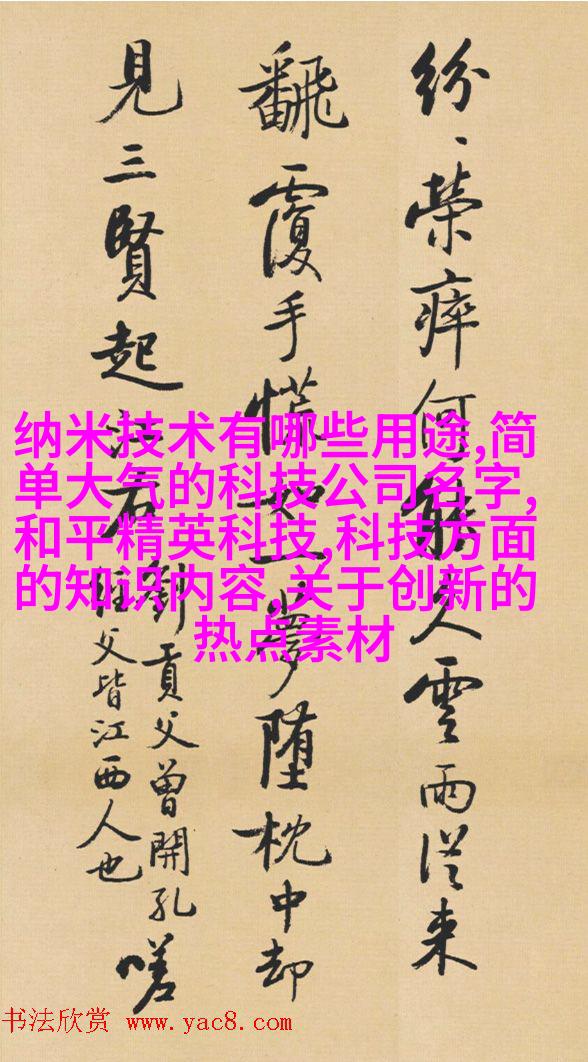 紛、榮瘁何能久雲雨從来
飜覆手慌如一夢堕枕中却
見三賢起江右
劉貢父曾開孔
經父皆江西人也
嗟
纳米技术有哪些用途,简
单大气的科技公司名字,
和平精英科技,科技方面
的知识内容,关于创新的
热点素材
书法欣赏 www.yac8.com